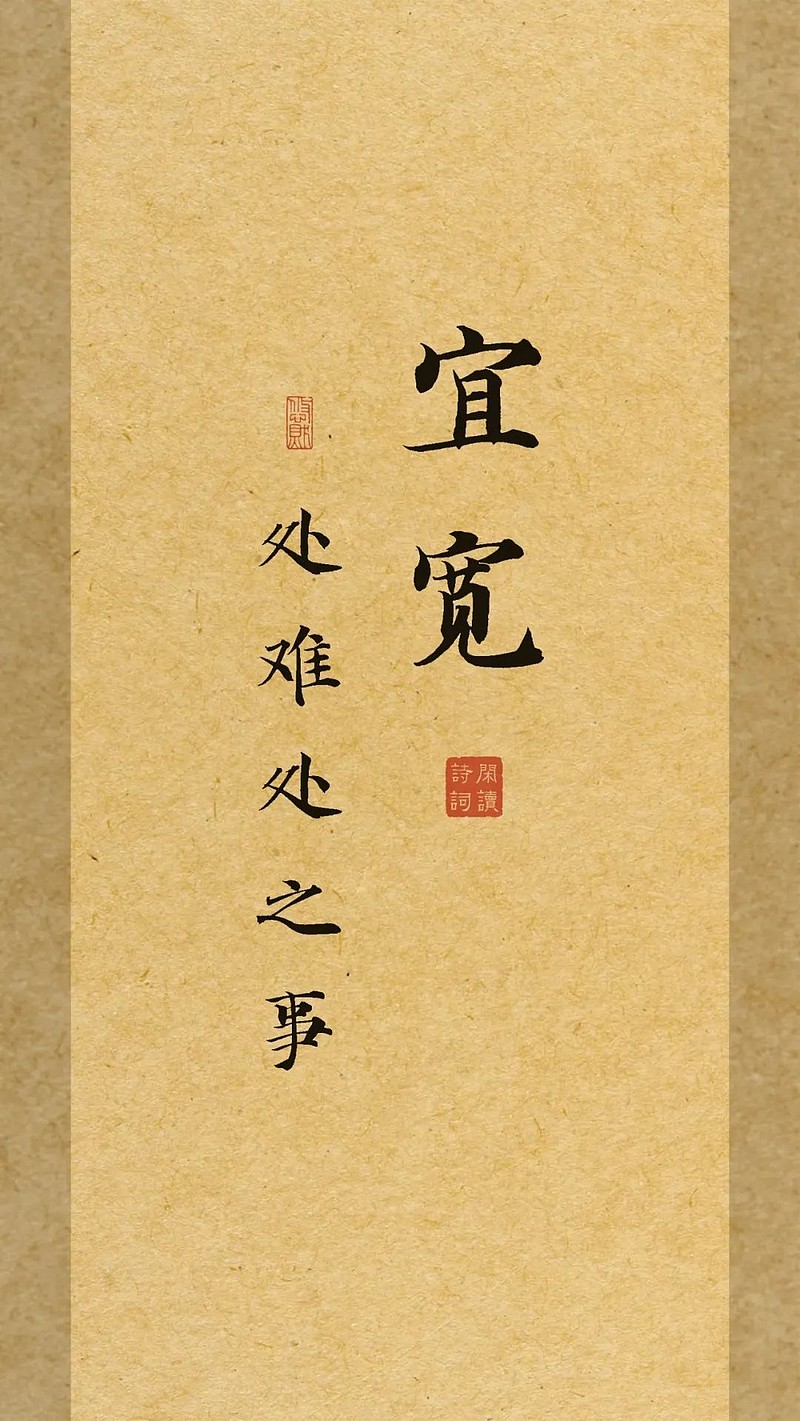 宜宽
閑讀
詩詞
处难处之事